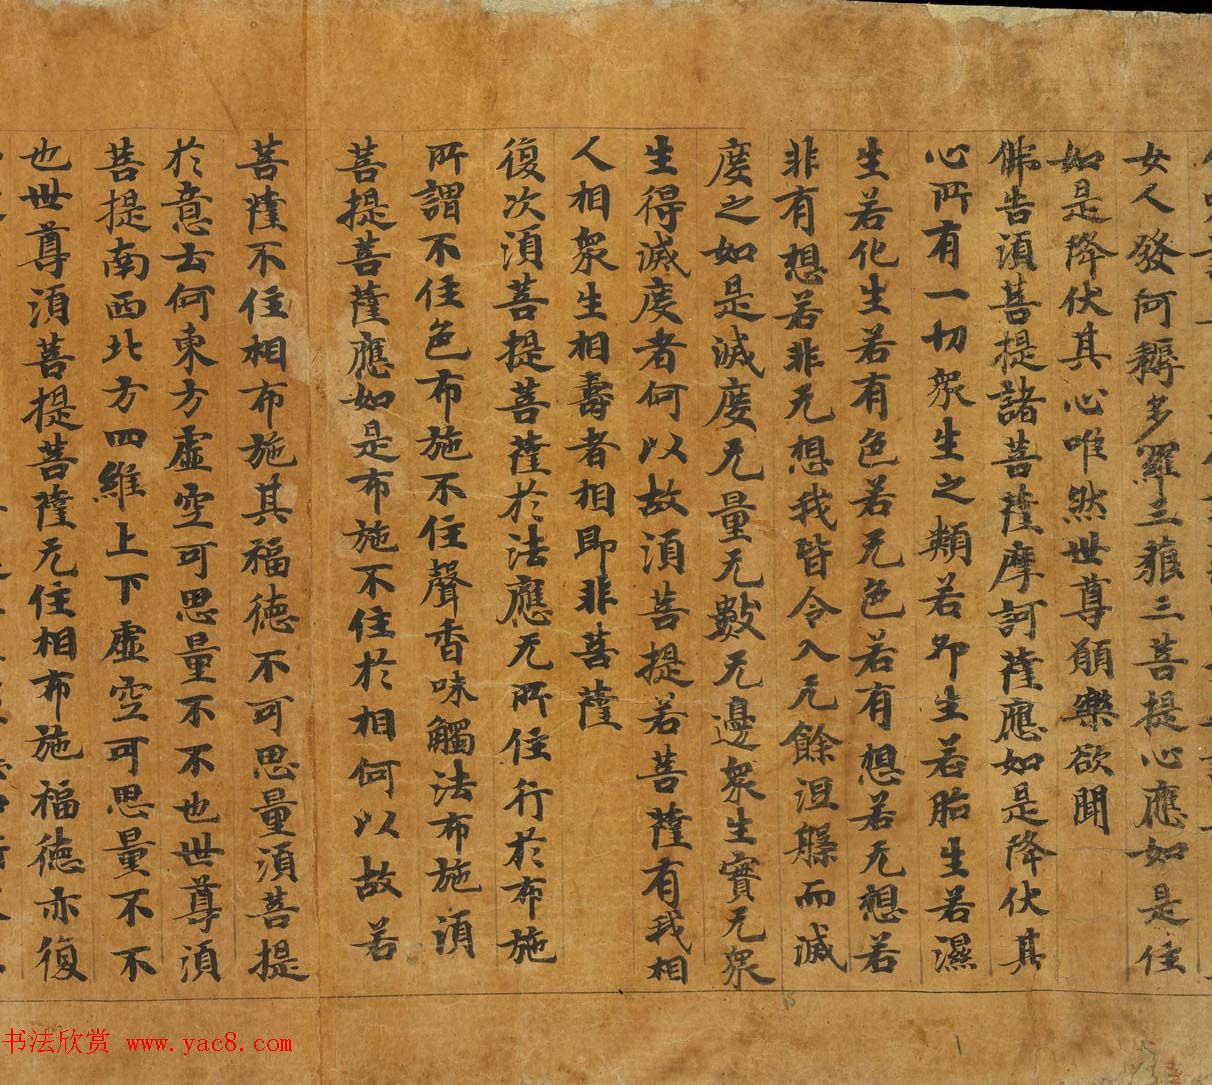 女人發阿耨多羅三藐三菩提心應如是住
如是降伏其心唯然世尊願樂欲聞
佛告須菩提諸菩薩摩訶薩應如是降伏其
心所有一切衆生之類若卵生若胎生若濕
生若化生若有色若无色若有想若无想若
非有想若非无想我皆令入无餘涅槃而滅
度之如是滅度无量无數无邊衆生實无衆
生得滅度者何以故須菩提若菩薩有我相
人相衆生相壽者相即非菩薩
復次須菩提菩薩於法應无所住行於布施
所謂不住色布施不住聲香味觸法布施須
菩提菩薩應如是布施不住於相何以故若
菩薩不住相布施其福德不可思量須菩提
於意云何東方虛空可思量不不也世尊須
菩提南西北方四維上下虛空可思量不不
也世尊須菩提菩薩无住相布施福德亦復
书法欣赏 www.yac8.com